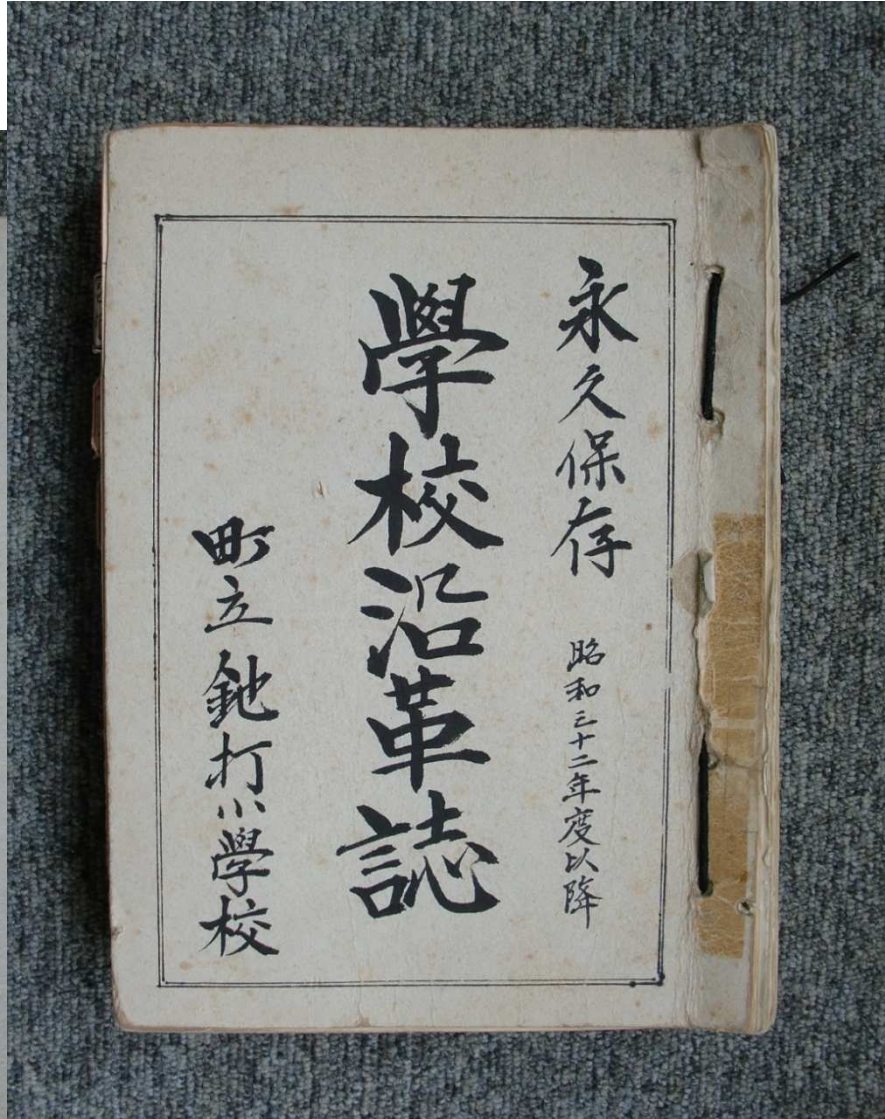 永久保存 昭和三十二年度以降
學校沿革誌
町立釶打小學校